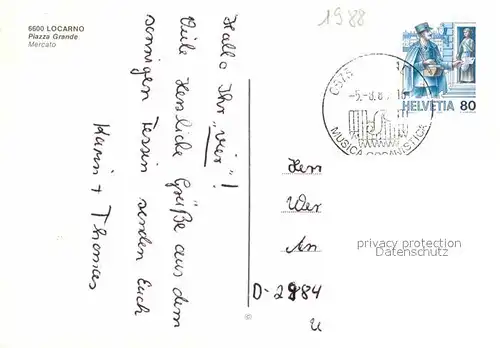 6600 LOCARNO
Piazza Grande
Mercato
1988
HELVETIA 80
6575
-5.-8.8
MUSICA
Hallo Ihr „vier"!
Viele Herzliche Grüße aus dem
sonnigen Tessin senden Euch
Karin + Thomas
Herr
An
privacy protection
Datenschutz
©